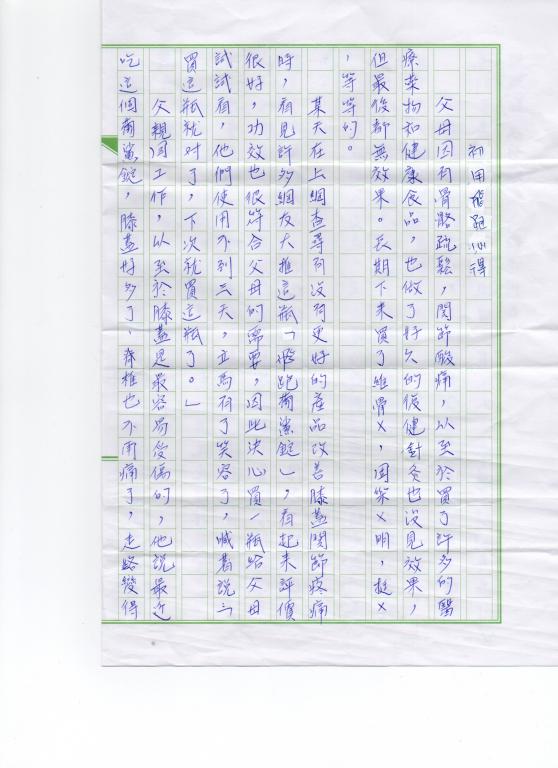 初用飛跑心得
父母因有骨骼疏鬆，関節酸痛，以至於買了許多的醫
療藥物和健康食品，也做了好久的復健針灸也沒見效果，
但最後都無效果。長期下來買了維骨X，固策X明，挺X
，等等的。
某天在上網查尋有沒有更好的產品改善膝蓋関節疼痛
時，看見許多網友大推這瓶「飛跑葡鯊錠」，看起來評價
很好，功效也很符合父母的需要，因此決心買一瓶給父母
試試看，他們使用不到三天，立馬有了笑容了，喊著說「
買這瓶就对了，下次就買這瓶了。」
父親因工作，以至於膝蓋是最容易受傷的，他說最近
吃這個葡鯊錠，膝蓋好多了、脊椎也不用痛了，走路變得